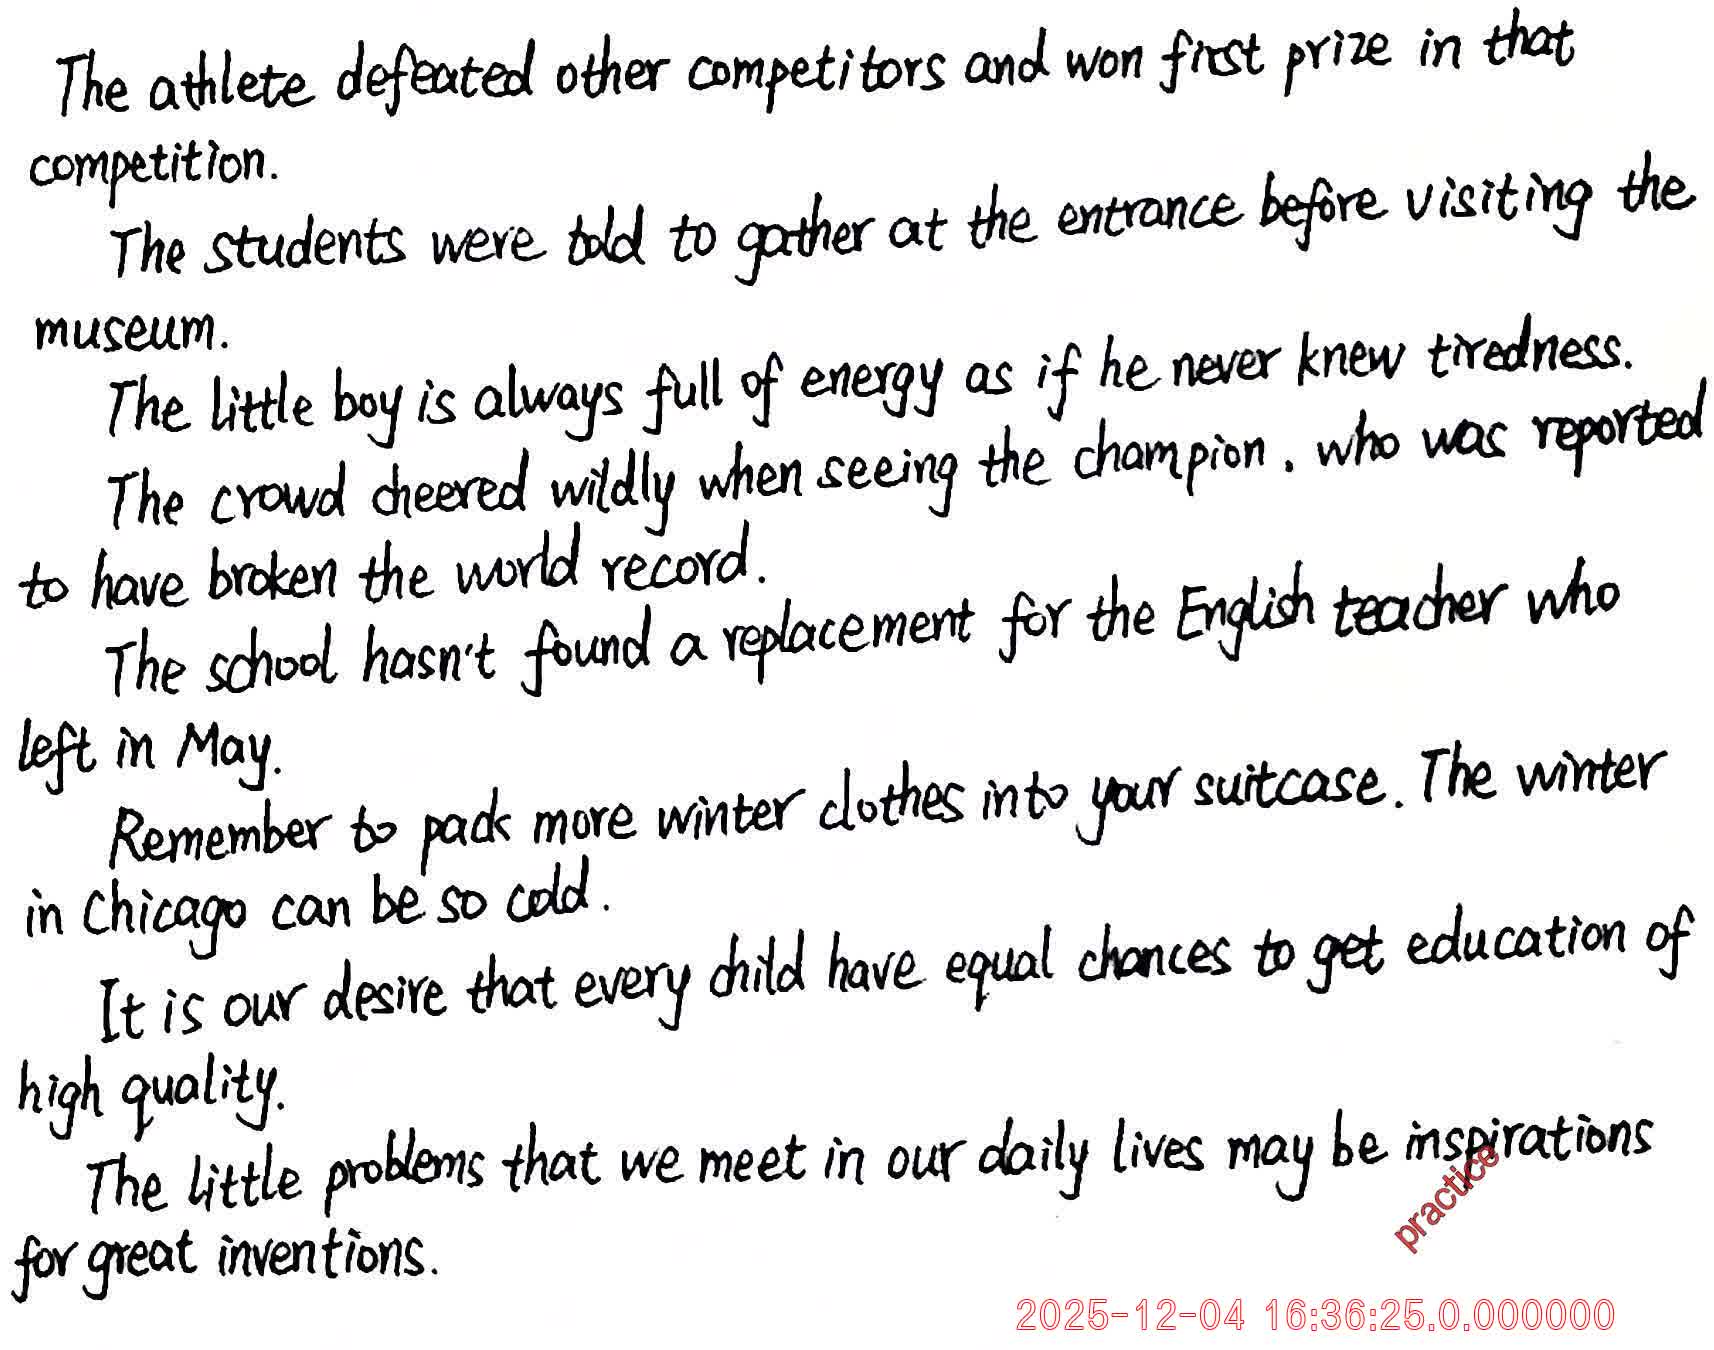 The athlete defeated other competitors and won first prize in that
competition.
The students were told to gather at the entrance before visiting the
museum.
The little boy is always full of energy as if he never knew tiredness.
The crowd cheered wildly when seeing the champion, who was reported
to have broken the world record.
The school hasn't found a replacement for the English teacher who
left in May.
Remember to pack more winter clothes into your suitcase. The winter
in Chicago can be so cold.
It is our desire that every child have equal chances to get education of
high quality.
The little problems that we meet in our daily lives may be inspirations
for great inventions.
practice
2025-12-04 16:36:25.0.000000